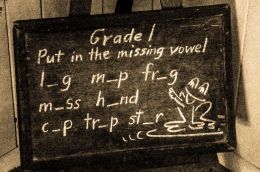 Grade 1
Put in the missing vowel
l_g m_p fr_g
m_ss h_nd
c_p tr_p st_r